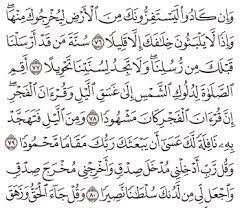 وَإِن كَادُوا۟ لَيَسْتَفِزُّونَكَ مِنَ ٱلْأَرْضِ لِيُخْرِجُوكَ مِنْهَا ۖ
وَإِذًا لَّا يَلْبَثُونَ خِلَٰفَكَ إِلَّا قَلِيلًا ٧٦ سُنَّةَ مَن قَدْ أَرْسَلْنَا
قَبْلَكَ مِن رُّسُلِنَا ۖ وَلَا تَجِدُ لِسُنَّتِنَا تَحْوِيلًا ٧٧ أَقِمِ
ٱلصَّلَوٰةَ لِدُلُوكِ ٱلشَّمْسِ إِلَىٰ غَسَقِ ٱلَّيْلِ وَقُرْءَانَ ٱلْفَجْرِ ۖ
إِنَّ قُرْءَانَ ٱلْفَجْرِ كَانَ مَشْهُودًا ٧٨ وَمِنَ ٱلَّيْلِ فَتَهَجَّدْ
بِهِۦ نَافِلَةً لَّكَ عَسَىٰٓ أَن يَبْعَثَكَ رَبُّكَ مَقَامًا مَّحْمُودًا ٧٩
وَقُل رَّبِّ أَدْخِلْنِى مُدْخَلَ صِدْقٍ وَأَخْرِجْنِى مُخْرَجَ صِدْقٍ
وَٱجْعَل لِّى مِن لَّدُنكَ سُلْطَٰنًا نَّصِيرًا ٨٠ وَقُلْ جَآءَ ٱلْحَقُّ وَزَهَقَ